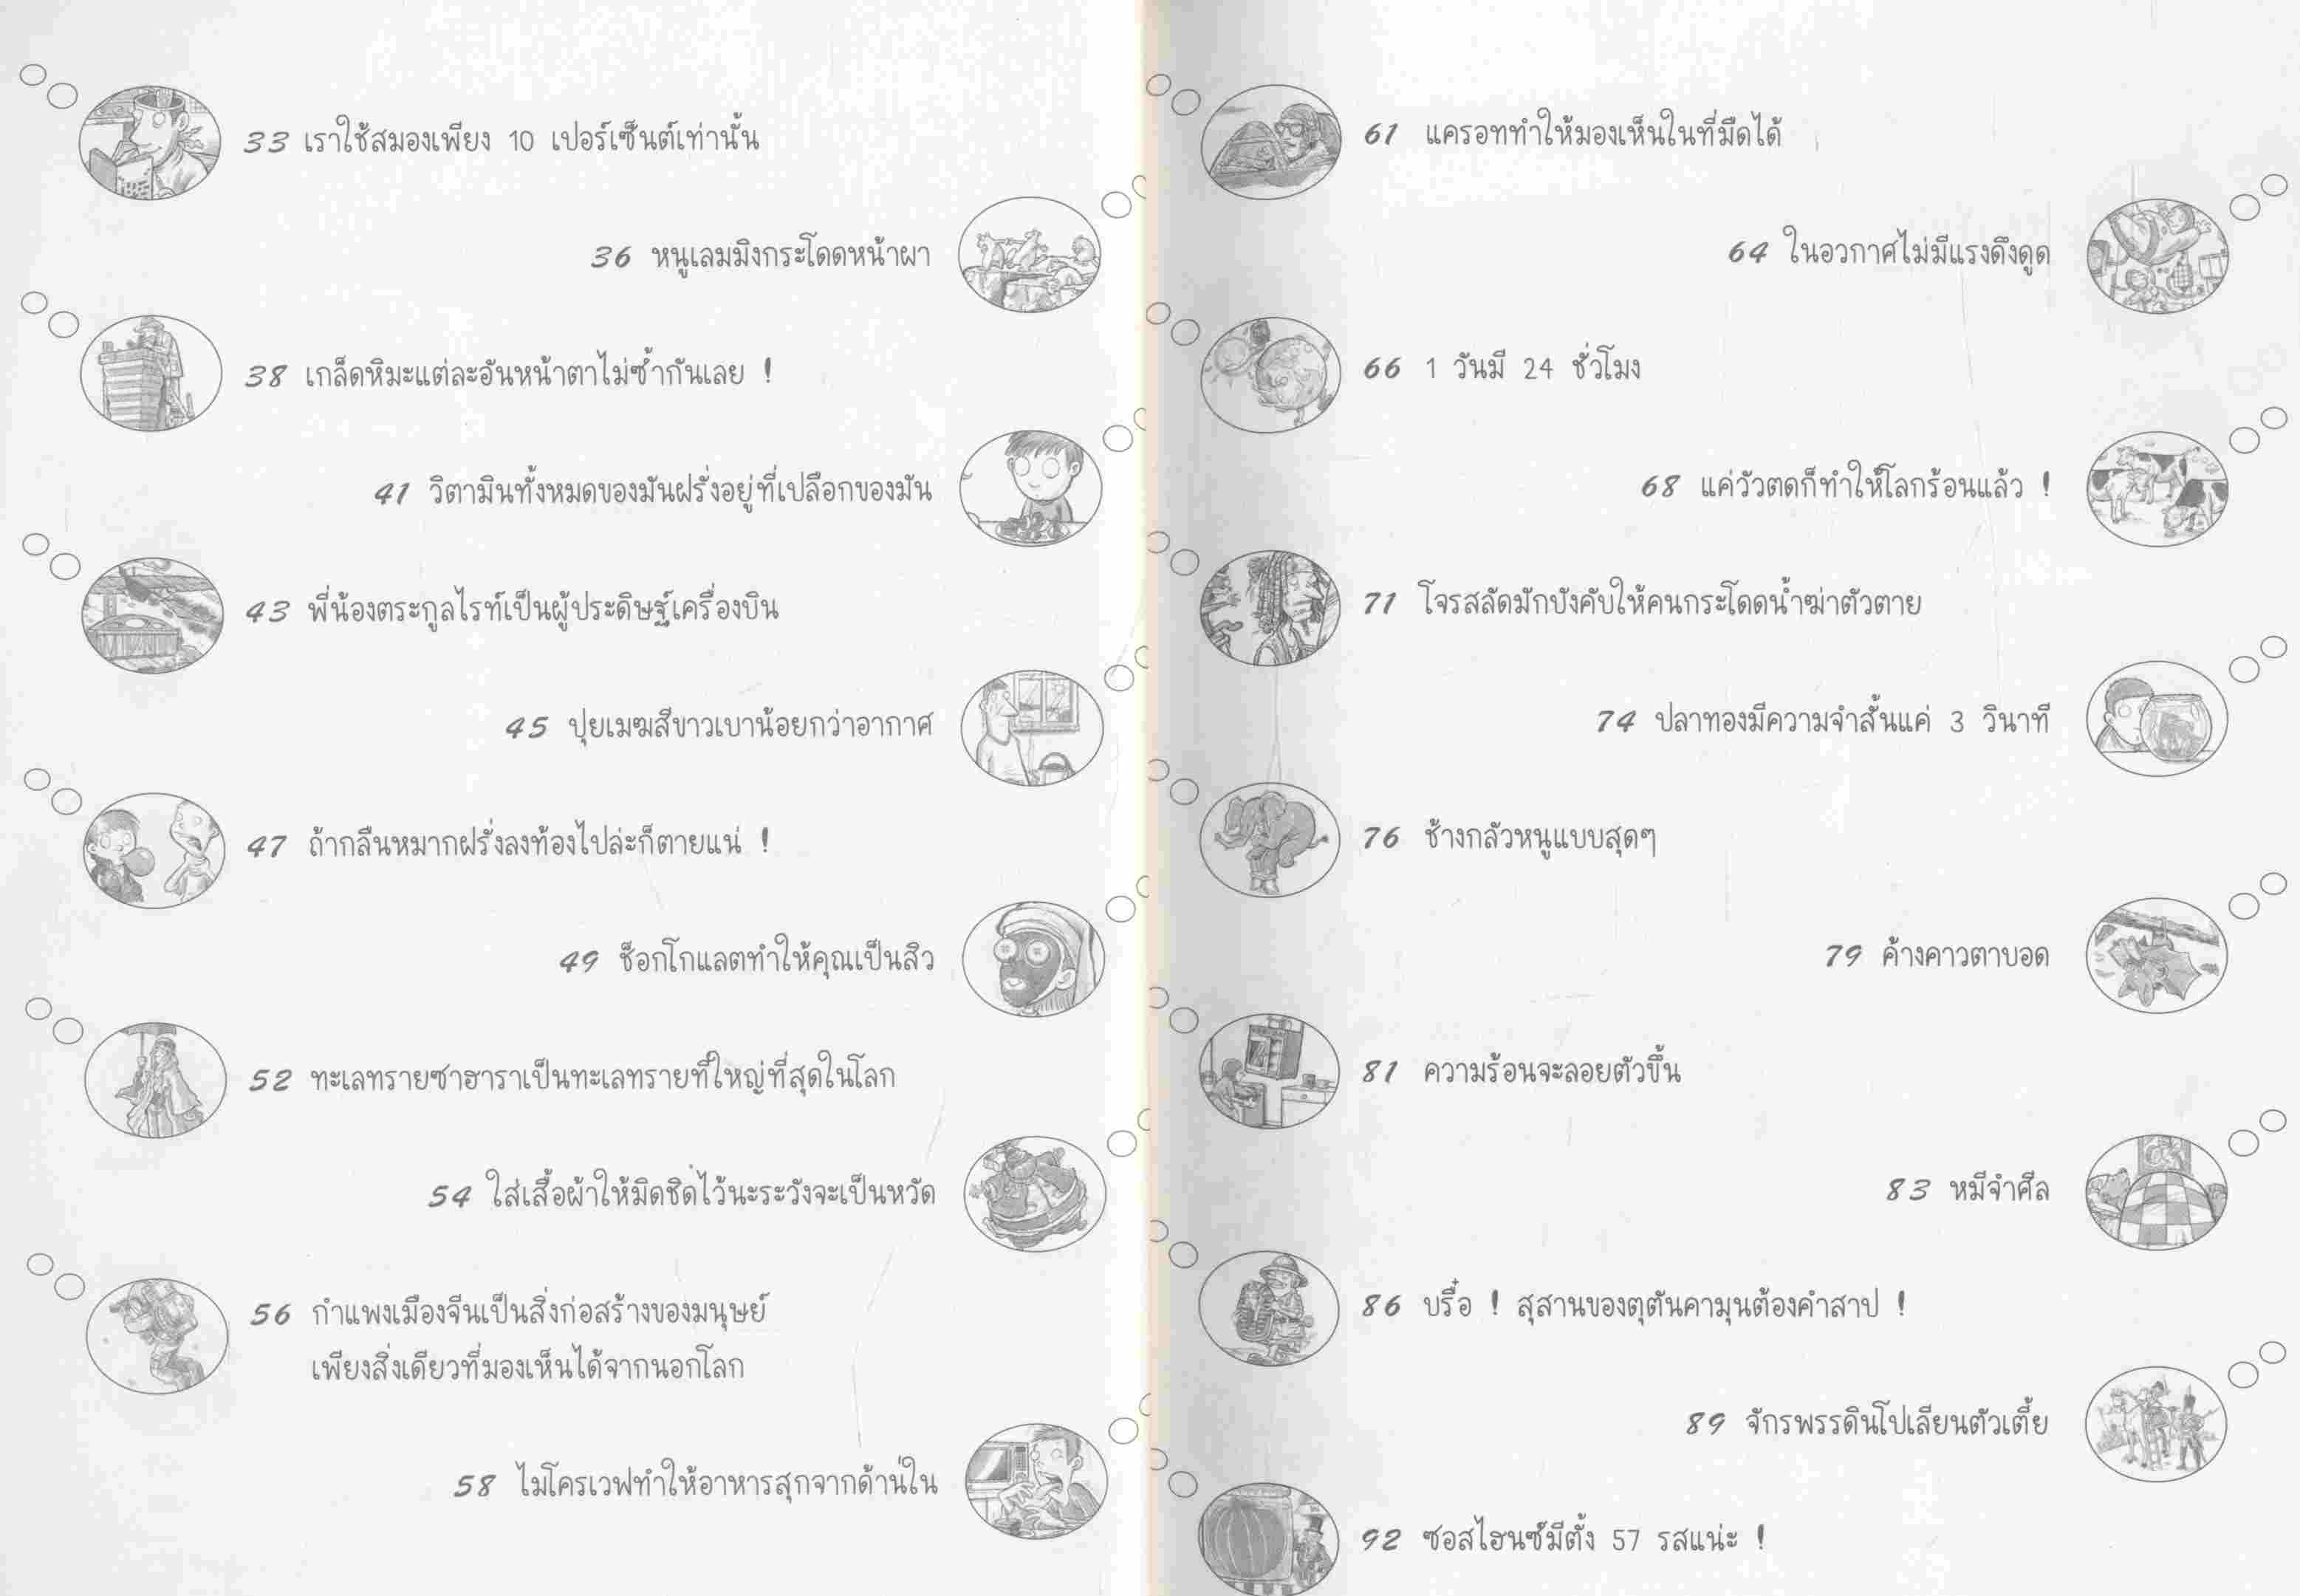 33 เราใช้สมองเพียง 10 เปอร์เซ็นต์เท่านั้น
36 หนูเลมมิงกระโดดหน้าผา
38 เกล็ดหิมะแต่ละอันหน้าตาไม่ซ้ำกันเลย !
41 วิตามินทั้งหมดของมันฝรั่งอยู่ที่เปลือกของมัน
43 พี่น้องตระกูลไรท์เป็นผู้ประดิษฐ์เครื่องบิน
45 ปุยเมฆสีขาวเบาน้อยกว่าอากาศ
47 ถ้ากลืนหมากฝรั่งลงท้องไปล่ะก็ตายแน่ !
49 ช็อกโกแลตทำให้คุณเป็นสิว
52 ทะเลทรายซาฮาราเป็นทะเลทรายที่ใหญ่ที่สุดในโลก
54 ใส่เสื้อผ้าให้มิดชิดไว้นะระวังจะเป็นหวัด
56 กำแพงเมืองจีนเป็นสิ่งก่อสร้างของมนุษย์
เพียงสิ่งเดียวที่มองเห็นได้จากนอกโลก
58 ไมโครเวฟทำให้อาหารสุกจากด้านใน
61 แครอททำให้มองเห็นในที่มืดได้
64 ในอวกาศไม่มีแรงดึงดูด
66 1 วันมี 24 ชั่วโมง
68 แค่วัวตดก็ทำให้โลกร้อนแล้ว !
71 โจรสลัดมักบังคับให้คนกระโดดน้ำฆ่าตัวตาย
74 ปลาทองมีความจำสั้นแค่ 3 วินาที
76 ช้างกลัวหนูแบบสุดๆ
79 ค้างคาวตาบอด
81 ความร้อนจะลอยตัวขึ้น
83 หมีจำศีล
86 บรื๋อ ! สุสานของตุตันคามุนต้องคำสาป !
89 จักรพรรดินโปเลียนตัวเตี้ย
92 ซอสไฮนซ์มีตั้ง 57 รสแน่ะ !